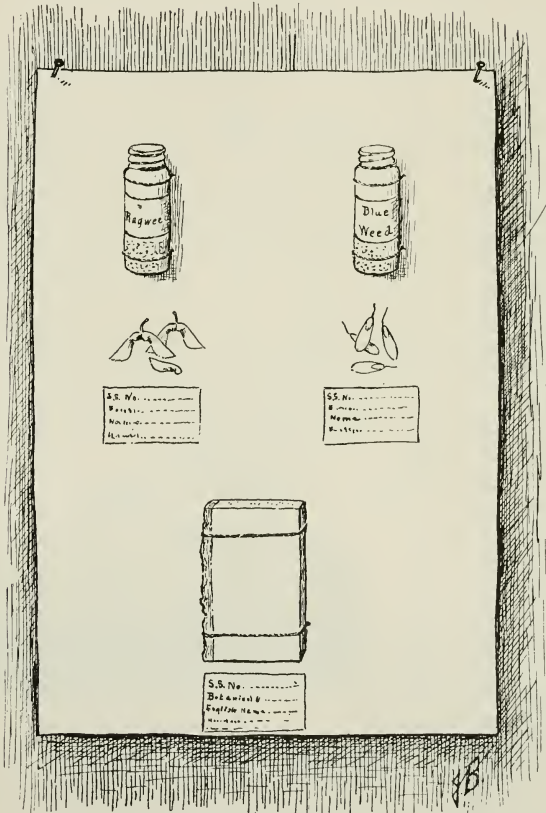 Ragwee
Blue
Weed
S.S. No.
Name
S.S. No.
Name
S.S. No.
Botanical &
English Name
JB